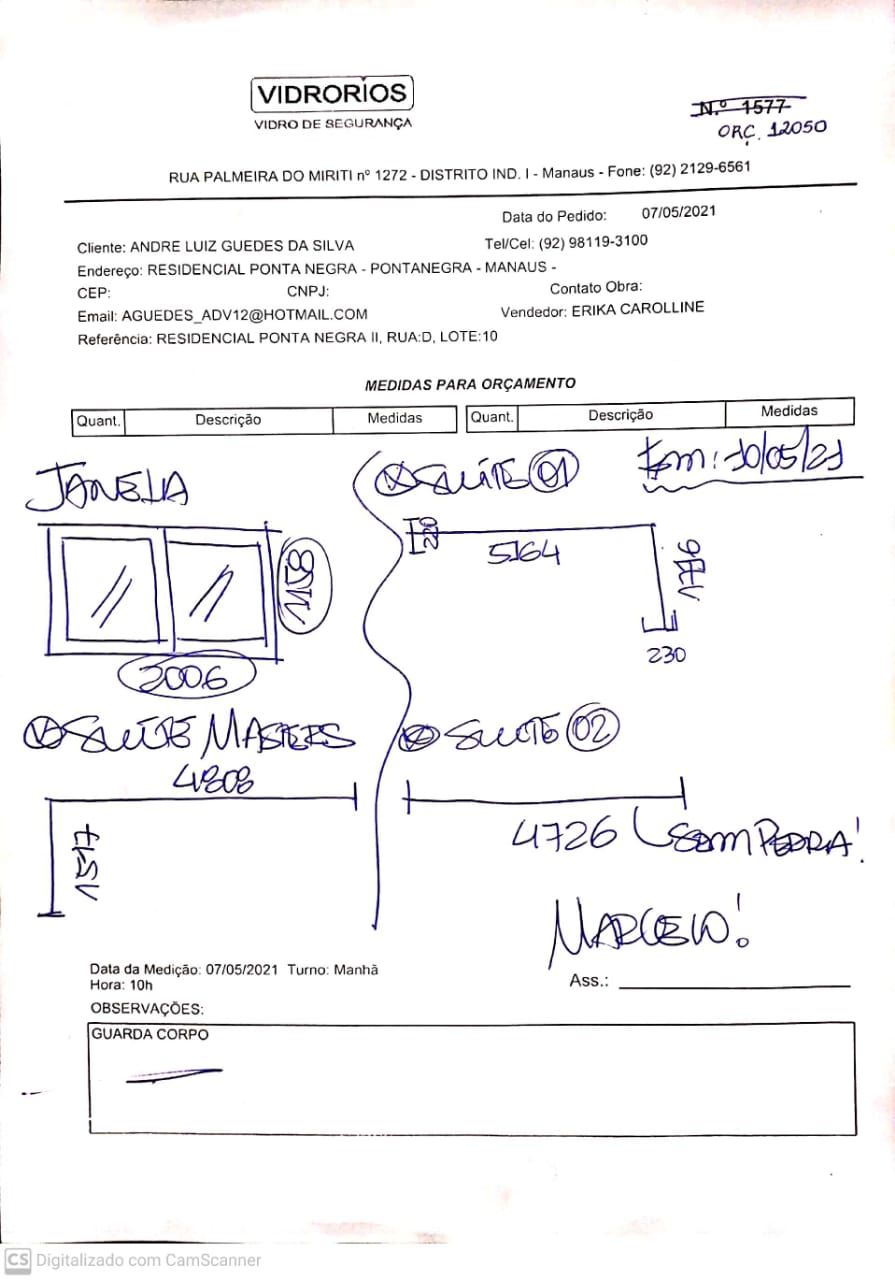 VIDRORIOS
VIDRO DE SEGURANÇA
N.º 1577
ORÇ. 12050
RUA PALMEIRA DO MIRITI nº 1272 - DISTRITO IND. I - Manaus - Fone: (92) 2129-6561
Data do Pedido: 07/05/2021
Cliente: ANDRE LUIZ GUEDES DA SILVA Tel/Cel: (92) 98119-3100
Endereço: RESIDENCIAL PONTA NEGRA - PONTANEGRA - MANAUS -
CEP: CNPJ: Contato Obra:
Email: AGUEDES_ADV12@HOTMAIL.COM Vendedor: ERIKA CAROLLINE
Referência: RESIDENCIAL PONTA NEGRA II, RUA:D, LOTE:10
MEDIDAS PARA ORÇAMENTO
Quant. Descrição Medidas Quant. Descrição Medidas
JANELA
SUÍTE 01
Em: 10/05/21
220
5164
230
2006
SUÍTE MASTER
4808
SUITE 02
4726 SEM PEDRA!
MARCELO!
Data da Medição: 07/05/2021 Turno: Manhã
Hora: 10h
Ass.:
OBSERVAÇÕES:
GUARDA CORPO
CS Digitalizado com CamScanner